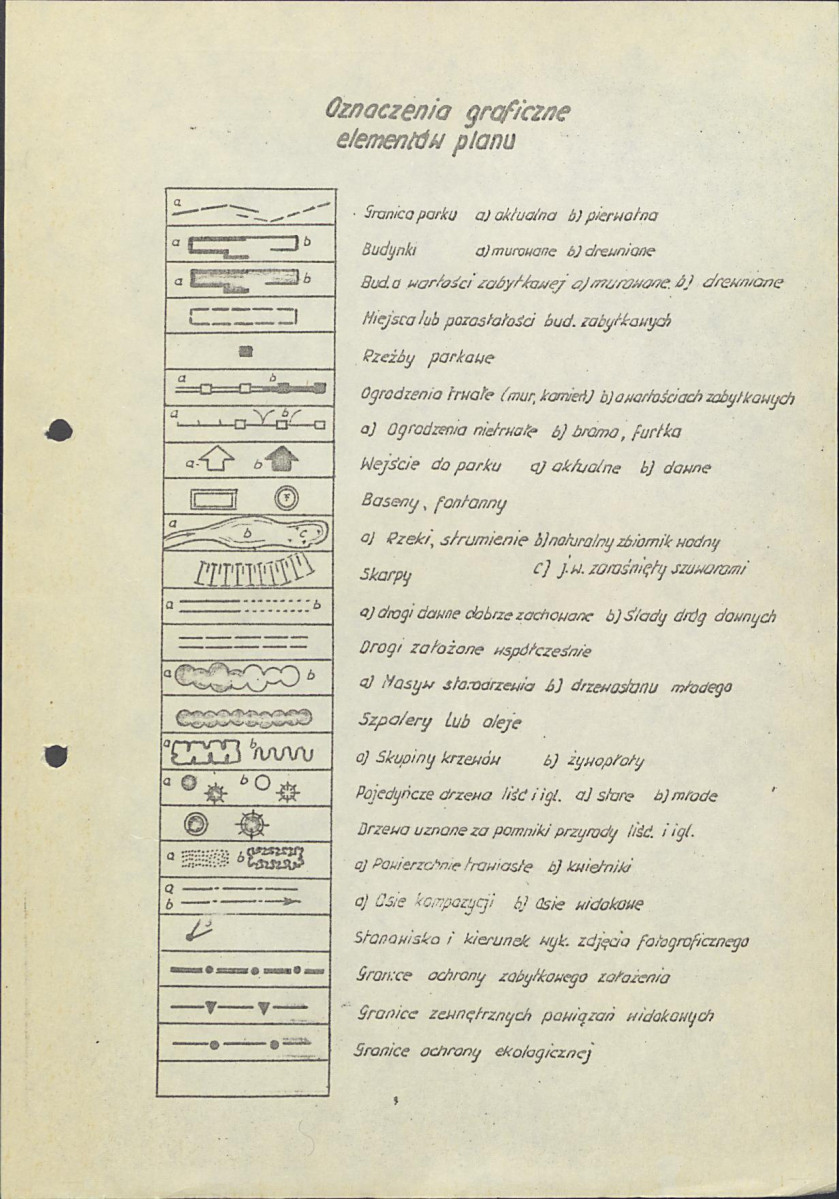 Oznaczenia graficzne
elementów planu
a
Granica parku a) aktualna b) pierwotna
a b
Budynki a) murowane b) drewniane
a b
Bud. o wartości zabytkowej a) murowane b) drewniane
Miejsca lub pozostałości bud. zabytkowych
Rzeźby parkowe
a b
Ogrodzenia trwałe (mur, kamień) b) o wartościach zabytkowych
a b
a) Ogrodzenia nietrwałe b) brama, furtka
a b
Wejście do parku a) aktualne b) dawne
F
Baseny, fontanny
a b c
a) Rzeki, strumienie b) naturalny zbiornik wodny
c) j.w. zarośnięty szuwarami
Skarpy
a b
a) drogi dawne dobrze zachowane b) Ślady dróg dawnych
Drogi założone współcześnie
a b
a) Masyw starodrzewia b) drzewostanu młodego
Szpalery lub aleje
a b
a) Skupiny krzewów b) żywopłoty
a b
Pojedyńcze drzewa liść i igl. a) stare b) młode
Drzewa uznane za pomniki przyrody liść. i igl.
a b
a) Powierzchnie trawiaste b) kwietniki
a
b
a) Osie kompozycji b) Osie widokowe
Stanowiska i kierunek wyk. zdjęcia fotograficznego
Granice ochrony zabytkowego założenia
Granice zewnętrznych powiązań widokowych
Granice ochrony ekologicznej